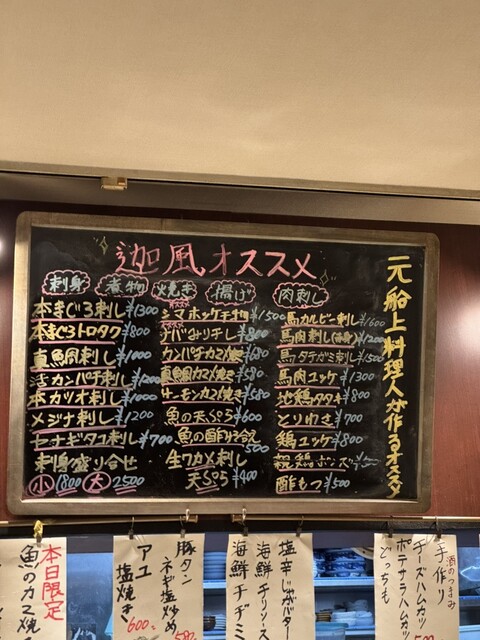 迦風オススメ
元船上料理人が作るオススメ
刺身
煮物
焼き
揚げ
肉刺し
本まぐろ刺し ¥1300
本まぐろトロタク ¥800
真鯛刺し ¥1000
活カンパチ刺し ¥1200
本カツオ刺し ¥1000
メジナ刺し ¥1200
ヤナギダコ刺し ¥700
刺身盛り合せ
小 1800 大 2500
シマホッケ干物 ¥1500
カンパチカマ焼き ¥680
真鯛カマ焼き ¥580
サーモンカマ焼き ¥580
魚の天ぷら ¥600
魚の酢の和え 500
生ワカメ刺し
天ぷら ¥400
馬カルビー刺し ¥1600
馬肉刺し
馬タテガミ刺し ¥1500
馬肉ユッケ ¥1300
地鶏タタキ ¥800
とりわさ ¥700
鶏ユッケ ¥800
酢もつ ¥500
本日限定
魚のカマ焼
アユ
塩焼き
600
豚タン
ネギ塩炒め
580
塩辛じゃがバター
海鮮チリソース
海鮮チヂミ
酒のつまみ
手作り
チーズハムカツ
ポテサラハムカ
どっちも